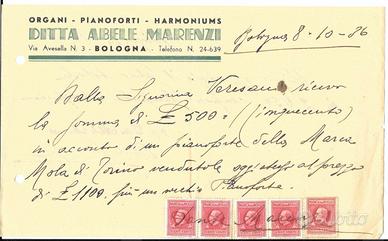 ORGANI - PIANOFORTI - HARMONIUMS
DITTA ABELE MARENZI
Via Avesella N. 3 - BOLOGNA - Telefono N. 24-639
Bologna 8-10-36
Dalla Signorina Varesano ricevo
la somma di £ 500= (cinquecento)
in acconto di un pianoforte della Marca
Mola di Torino vendutole oggi stesso al prezzo
di £ 1100. più un vecchio Pianoforte.